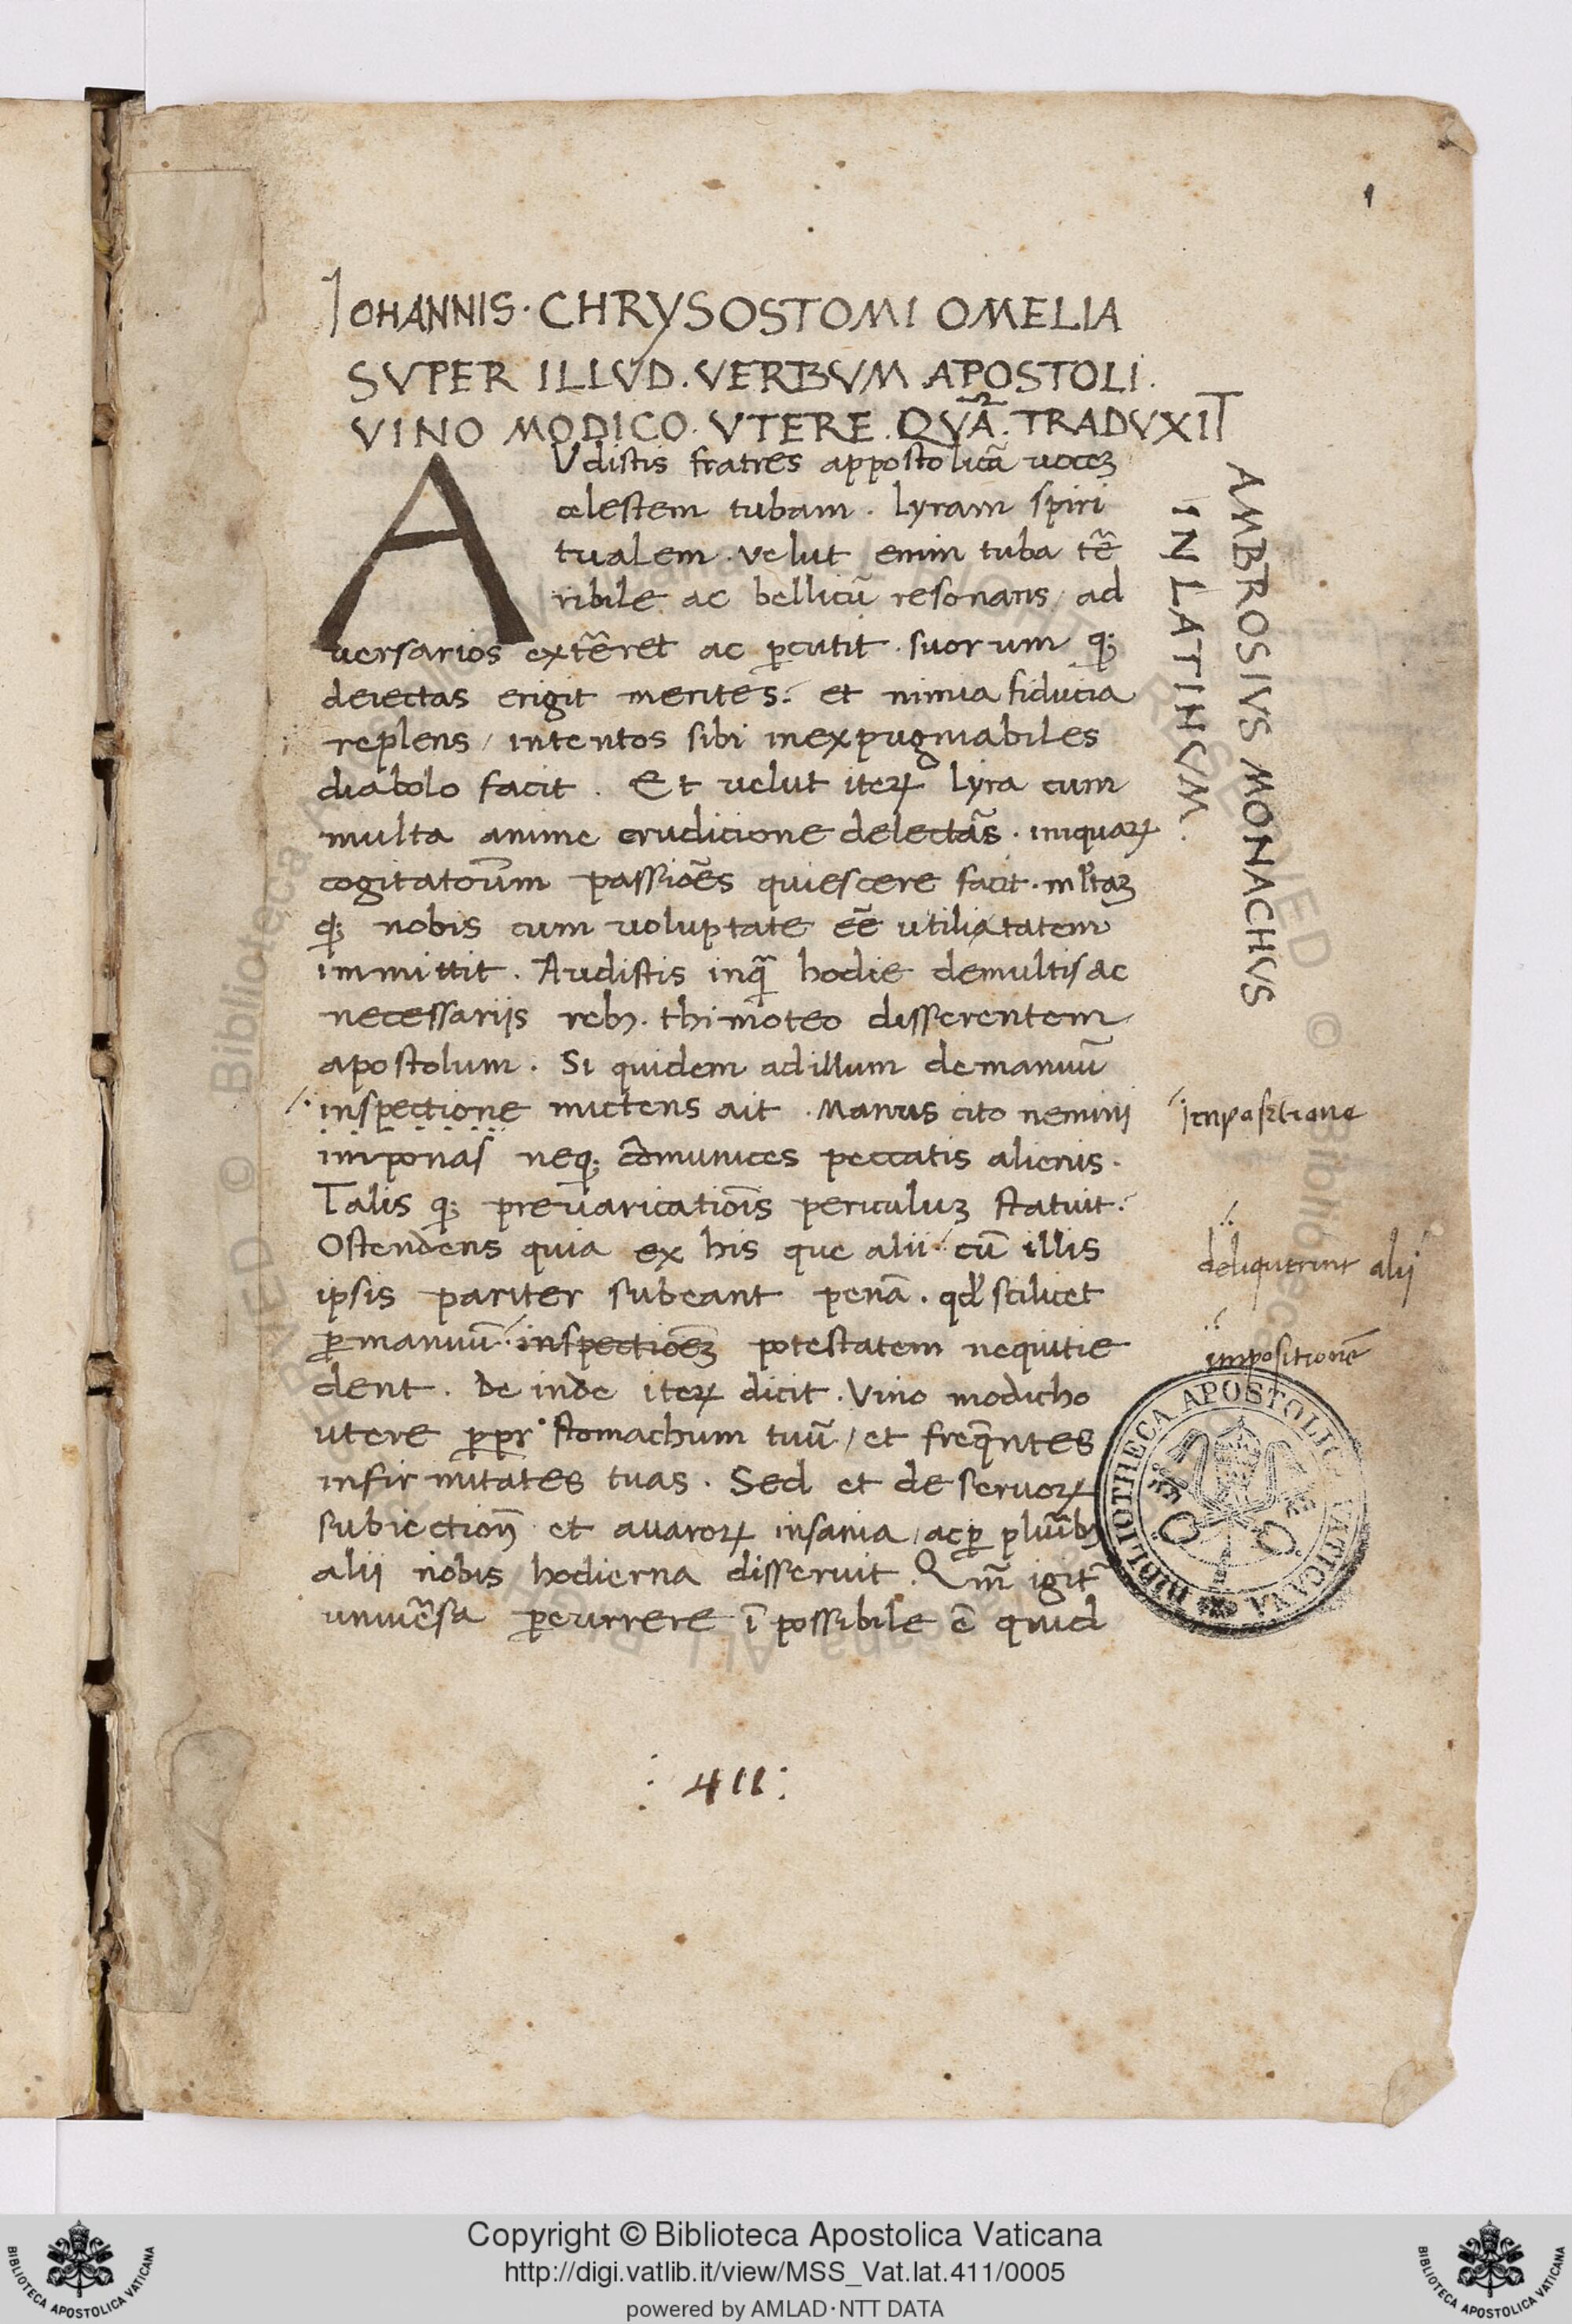 1
IOHANNIS · CHRYSOSTOMI OMELIA
SVPER ILLVD. VERBVM APOSTOLI.
VINO MODICO. VTERE. QVÃ. TRADVXIT
AMBROSIVS MONACHVS
IN LATINVM.
AVdistis fratres appostolicã uocez
celestem tubam. lyram spiri
tualem. velut enim tuba tẽ
ribile ac bellicũ resonans / ad
uersarios extẽret ac ꝑcutit. suorum qꝫ
deiectas erigit mentes: et nimia fiducia
replens / intentos sibi inexpugnabiles
diabolo facit. Et uelut iteꝝ lyra cum
multa anime erudicione delectãs. iniquaꝝ
cogitatoũm passiões quiescere facit. mltaꝫ
qꝫ nobis cum voluptate eẽ utilitatem
immittit. Audistis inquã hodie demultis ac
necessariis rebꝫ. thimoteo disserentem
apostolum. Si quidem adillum demanuũ
inspectione mictens ait. Manus cito nemini
imponas neqꝫ cõmunices peccatis alienis.
Talis qꝫ prevaricatiõis periculuꝫ statuit.
Ostendens quia ex his que alii cũ illis
ipsis pariter subeant penã. qd' scilicet
ꝑmanuũ inspectioẽꝫ potestatem nequitie
dent. De inde iteꝝ dicit. Vino modicho
utere ꝓpr stomachum tuũ / et freq̃ntes
infirmitates tuas. Sed et de seruoꝝ
subiection̄ et auaroꝝ insania / ac ꝑ pluribꝫ
alii nobis hodierna disseruit. Qm̃ igit̃
uniuẽsa ꝑcurrere ĩpossibile ẽ quid
impositione
deliquerint alii
impositionẽ
: 411 :
BIBLIOTHECA APOSTOLICA VATICANA
Copyright © Biblioteca Apostolica Vaticana
http://digi.vatlib.it/view/MSS_Vat.lat.411/0005
powered by AMLAD·NTT DATA
BIBLIOTECA APOSTOLICA VATICANA
BIBLIOTECA APOSTOLICA VATICANA